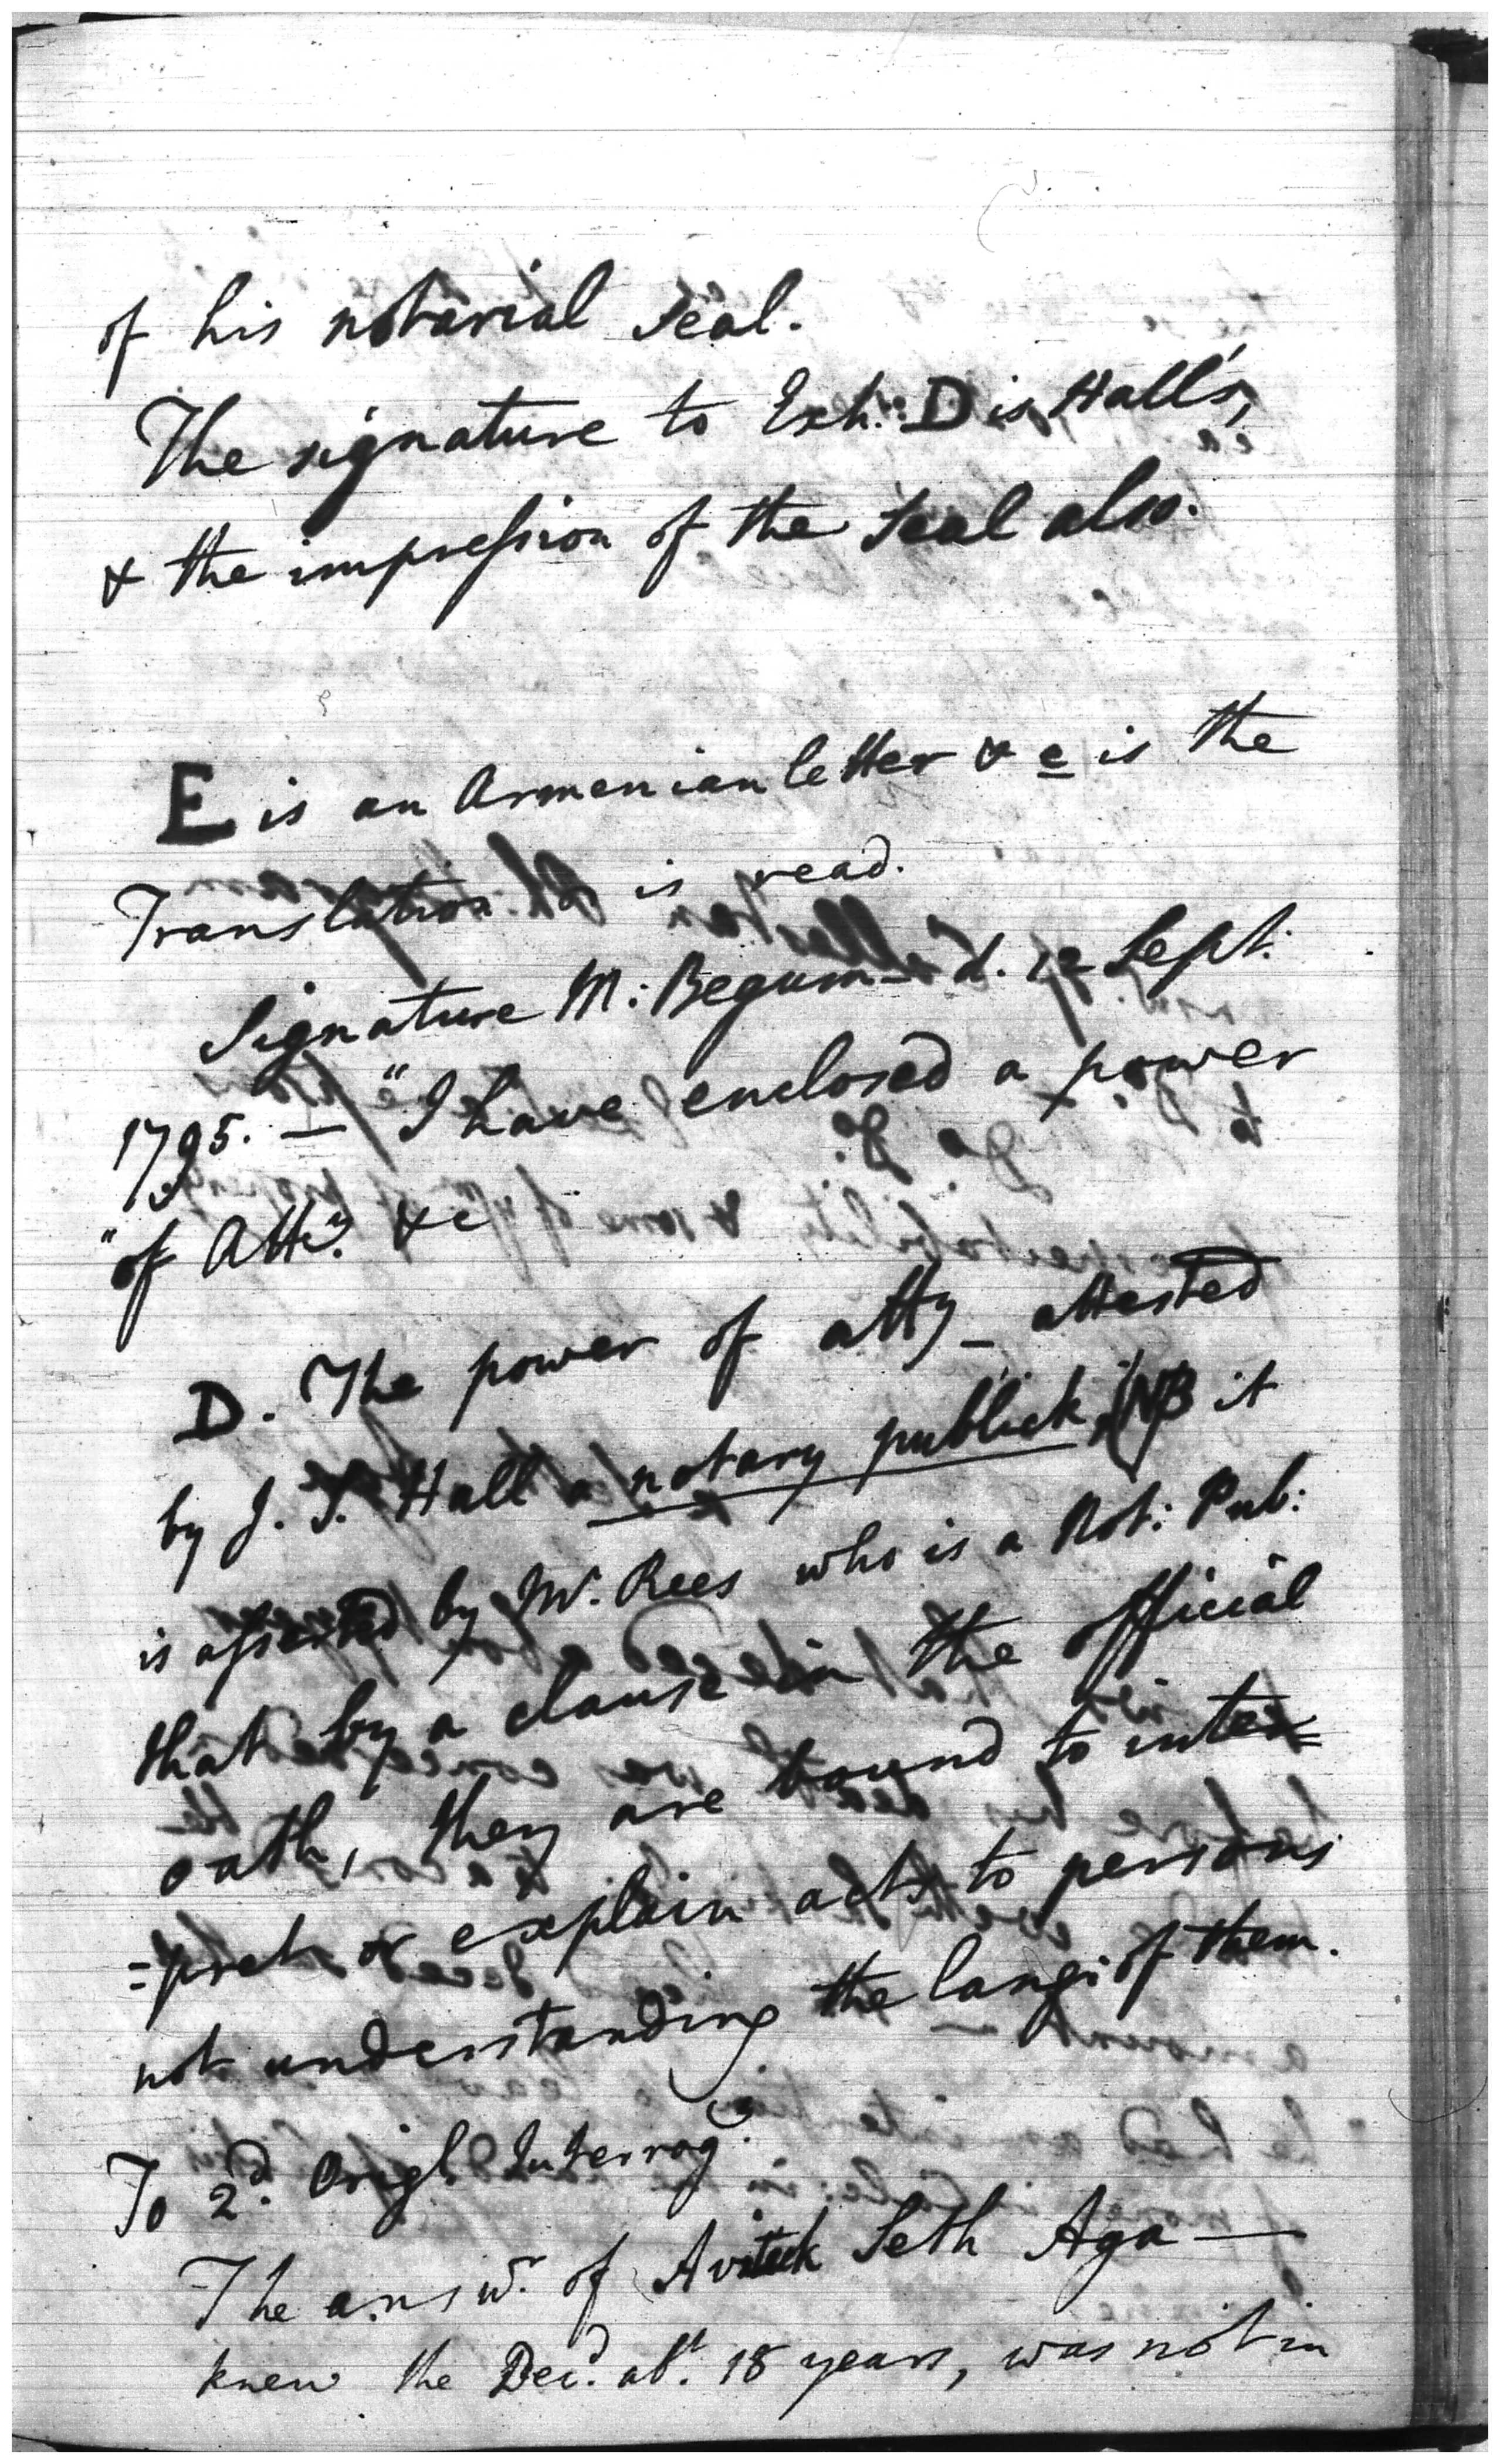 of his notarial Seal.
The signature to Exh:: D is Hall's,
& the impression of the Seal also.
E is an Armenian letter & e is the
Translation. is read.
Signature M: Begum — d. 12 Sept.
1795. — "I have enclosed a power
"of Atty. &c
D. The power of atty — attested
by J. S. Hall a notary publick, (NB it
is asserted by Mr. Rees who is a Not: Pub:
that by a clause in the official
oath, they are bound to inter=
=pret or explain acts to persons
not understanding the lang: of them.
To 2d. Origl. Interrogy.
The answr. of Avieteck Seth Aga —
knew the Decd. abt. 18 years, was not in